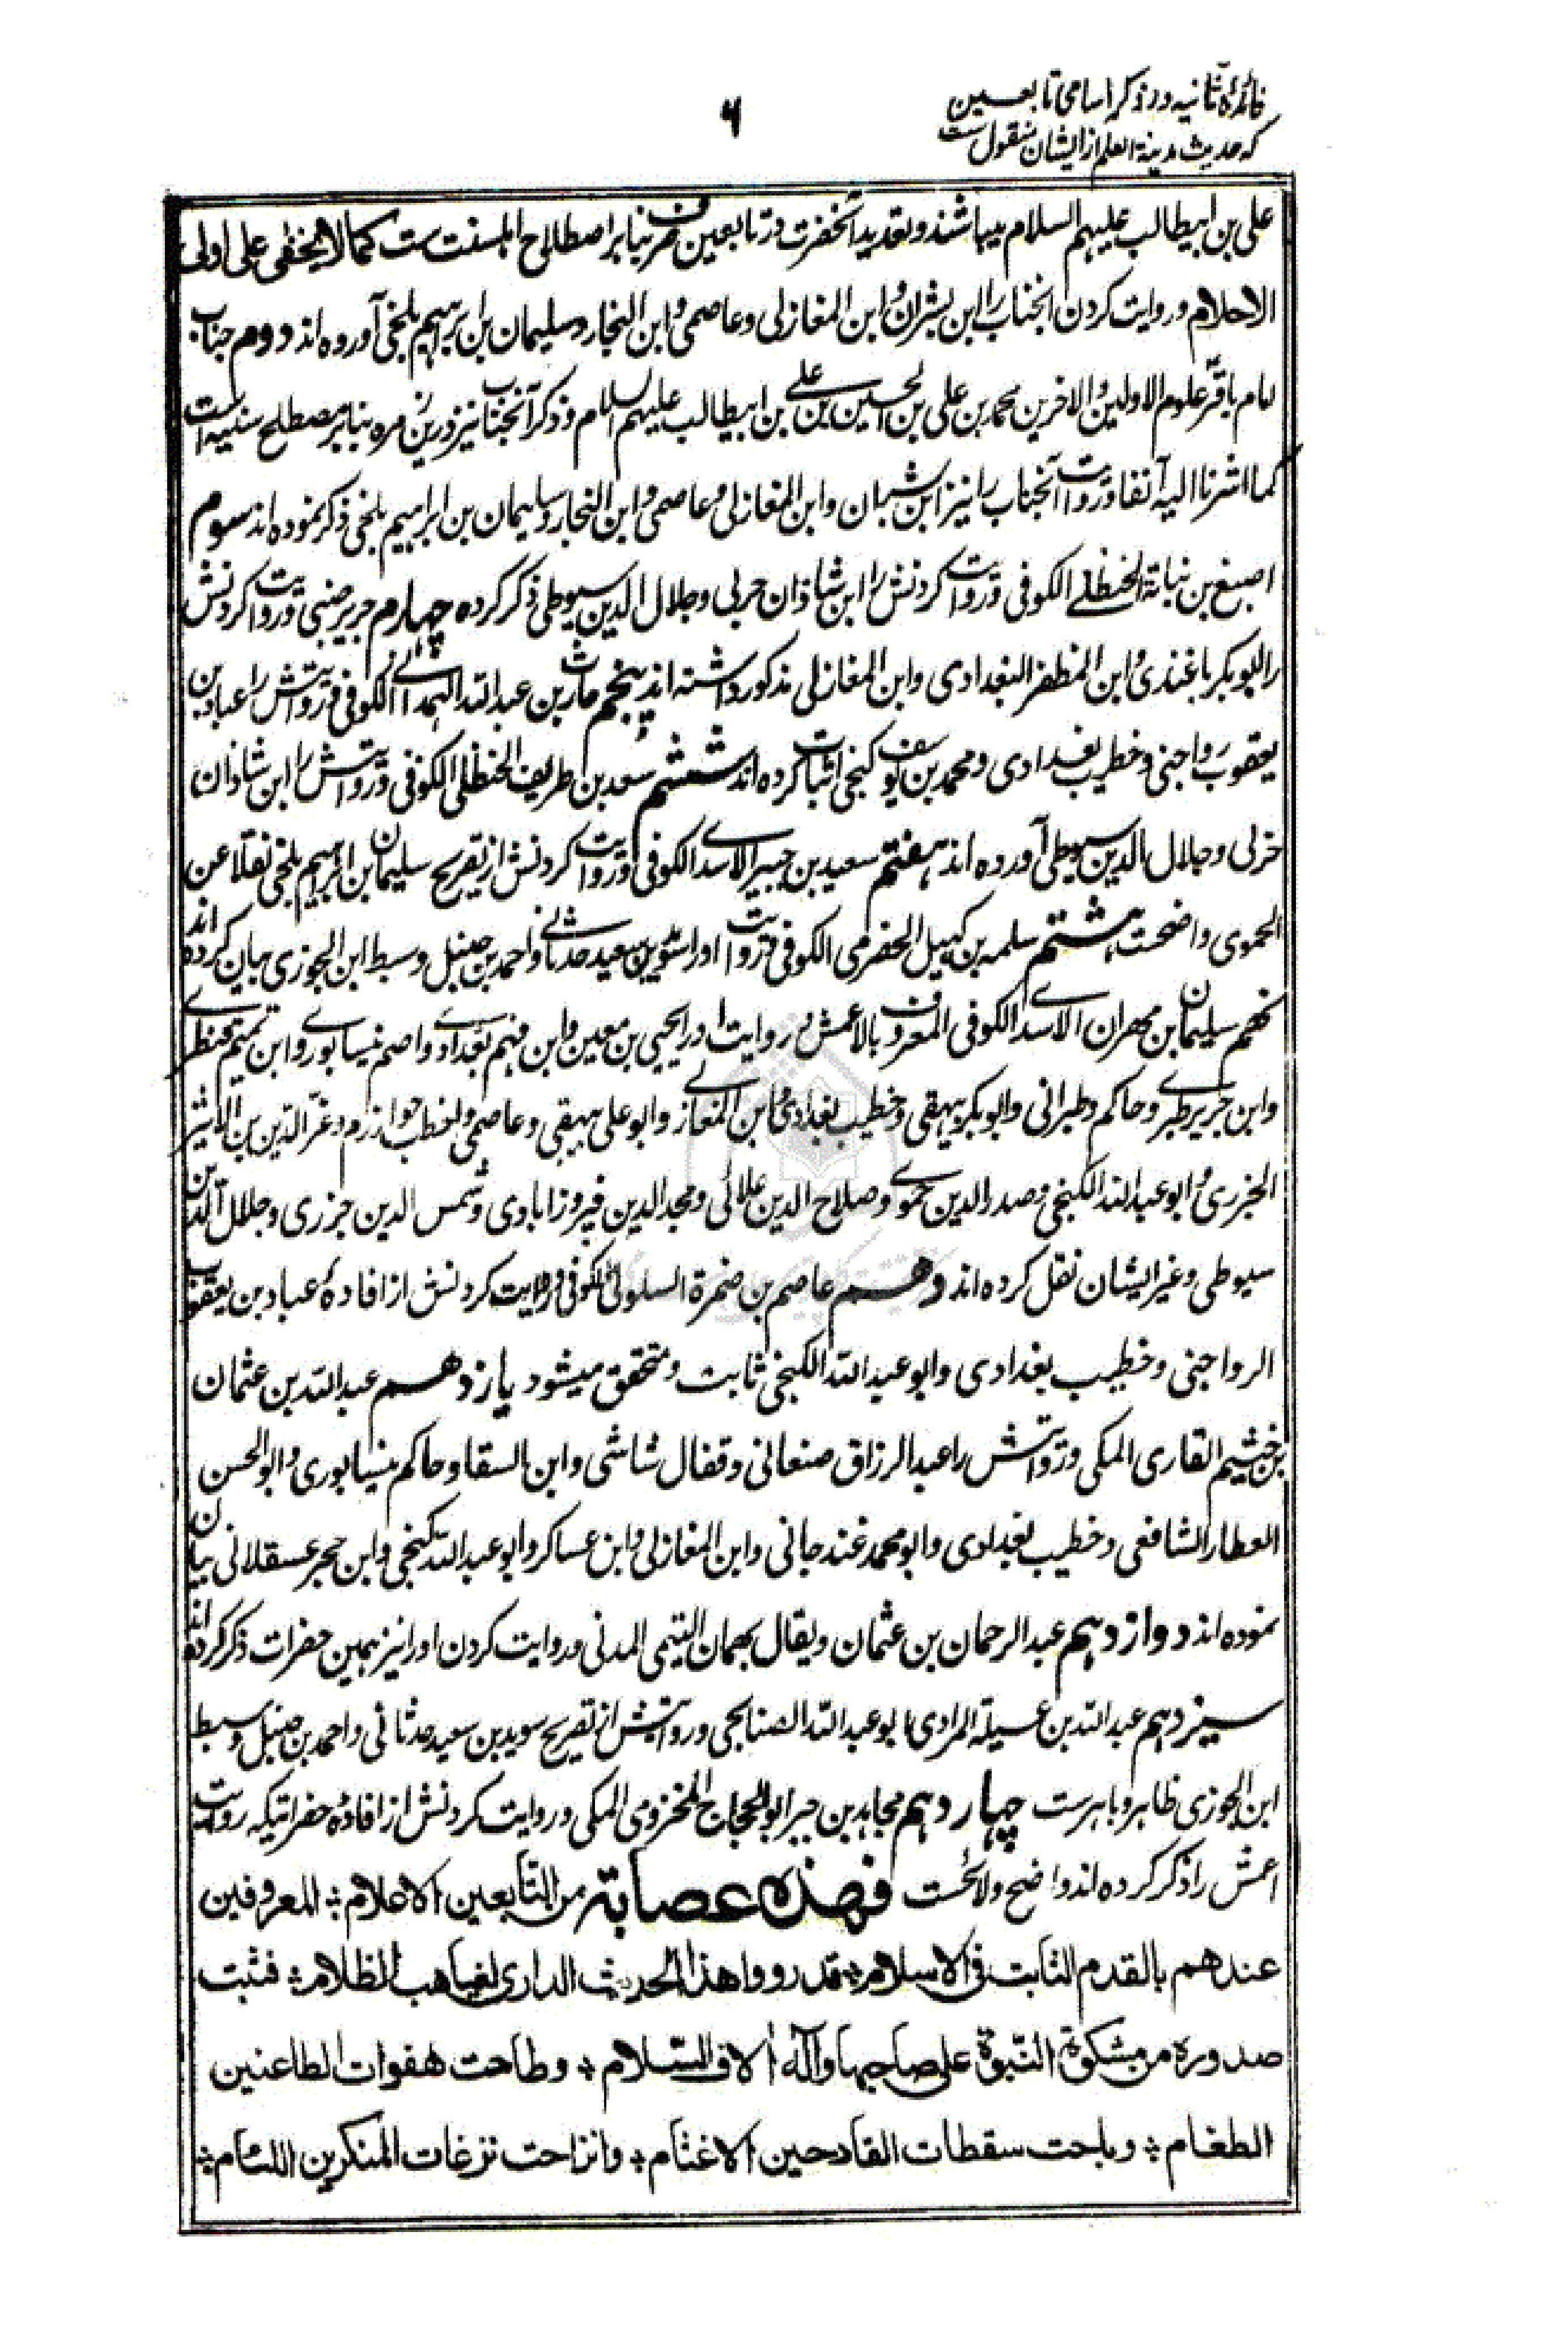 فائدهٔ ثانیه در ذکر اسامی تابعین
که حدیث مدینة العلم از ایشان منقول ست
۶
علی بن ابیطالب علیهم السلام میباشند و تعدید آنحضرت در تابعین بنابر اصطلاح اهلسنت ست کما لا یخفی علی اولی
الاحلام و روایت کردن آنجناب را ابن بشران و ابن المغازلی و عاصمی و ابن النجار و سلیمان بن ابراهیم بلخی آورده اند دوم جناب
امام باقر علوم الاولین والاخرین محمد بن علی بن الحسین بن علی بن ابیطالب علیهم السلام و ذکر آنجناب نیز درین زمره بنابر مصطلح سنیه است
کما اشرنا الیه آنفا و روایت آنجناب را نیز ابن بشران و ابن المغازلی و عاصمی و ابن النجار و سلیمان بن ابراهیم بلخی ذکر نموده اند سوم
اصبغ بن نباتة الحنظلی الکوفی و روایت کردنش را ابن شاذان حربی و جلال الدین سیوطی ذکر کرده چهارم جریر ضبی و روایت کردنش
را ابوبکر باغندی و ابن المظفر البغدادی و ابن المغازلی مذکور داشته اند پنجم حارث بن عبد الله الهمدانی الکوفی و روایتش را عباد بن
یعقوب رواجنی و خطیب بغدادی و محمد بن یوسف کنجی اثبات کرده اند ششم سعد بن طریف الحنظلی الکوفی و روایتش را ابن شاذان
حربی و جلال الدین سیوطی آورده اند هفتم سعید بن جبیر الاسدی الکوفی و روایت کردنش از تصریح سلیمان بن ابراهیم بلخی نقلا عن
الحموی واضحت هشتم سلمه بن کهیل الحضرمی الکوفی و روایت او را سوید بن سعید حدثانی و احمد بن حنبل و سبط ابن الجوزی بیان کرده اند
نهم سلیمان بن مهران الاسدی الکوفی المعروف بالاعمش و روایت او را یحیی بن معین و ابن فهم بغدادی و اصم نیسابوری و ابن تمیم قنطری
و ابن جریر طبری و حاکم و طبرانی و ابوبکر بیهقی و خطیب بغدادی و ابن المغازلی و ابو علی بیهقی و عاصمی و اخطب خوارزم و عز الدین بن الاثیر
الجزری و ابو عبد الله الکنجی و صدر الدین حموی و صلاح الدین علائی و مجد الدین فیروزابادی و شمس الدین جزری و جلال الدین
سیوطی و غیر ایشان نقل کرده اند دهم عاصم بن ضمرة السلولی الکوفی و روایت کردنش از افادهٔ عباد بن یعقوب
الرواجنی و خطیب بغدادی و ابو عبد الله الکنجی ثابت و متحقق میشود یازدهم عبد الله بن عثمان
بن خثیم القاری المکی و روایتش را عبد الرزاق صنعانی و قفال شاشی و ابن السقا و حاکم نیسابوری و ابو الحسن
العطار الشافعی و خطیب بغدادی و ابو محمد غندجانی و ابن المغازلی و ابن عساکر و ابو عبد الله کنجی و ابن حجر عسقلانی بیان
نموده اند دوازدهم عبد الرحمان بن عثمان و یقال بهمان التیمی المدنی و روایت کردن او را نیز همین حضرات ذکر کرده اند
سیزدهم عبد الله بن عسیلة المرادی ابو عبد الله الصنابحی و روایتش از تصریح سوید بن سعید حدثانی و احمد بن حنبل و سبط
ابن الجوزی ظاهر و باهرست چهاردهم مجاهد بن جبر ابو الحجاج المخزومی المکی و روایت کردنش از افادهٔ حضراتیکه روایت
اعمش را ذکر کرده اند واضح و لائحست فهذه عصابة من التابعین الاعلام ؞ المعروفین
عندهم بالقدم الثابت فی الاسلام ؞ قد رووا هذا الحدیث الداری لغیاهب الظلام ؞ فثبت
صدوره من مشکوة النبوة علی صاحبها وآله آلاف السلام ؞ وطاحت هفوات الطاعنین
الطغام ؞ وباحت سقطات القادحین الاغثام ؞ وانزاحت نزغات المنکرین اللئام ؞